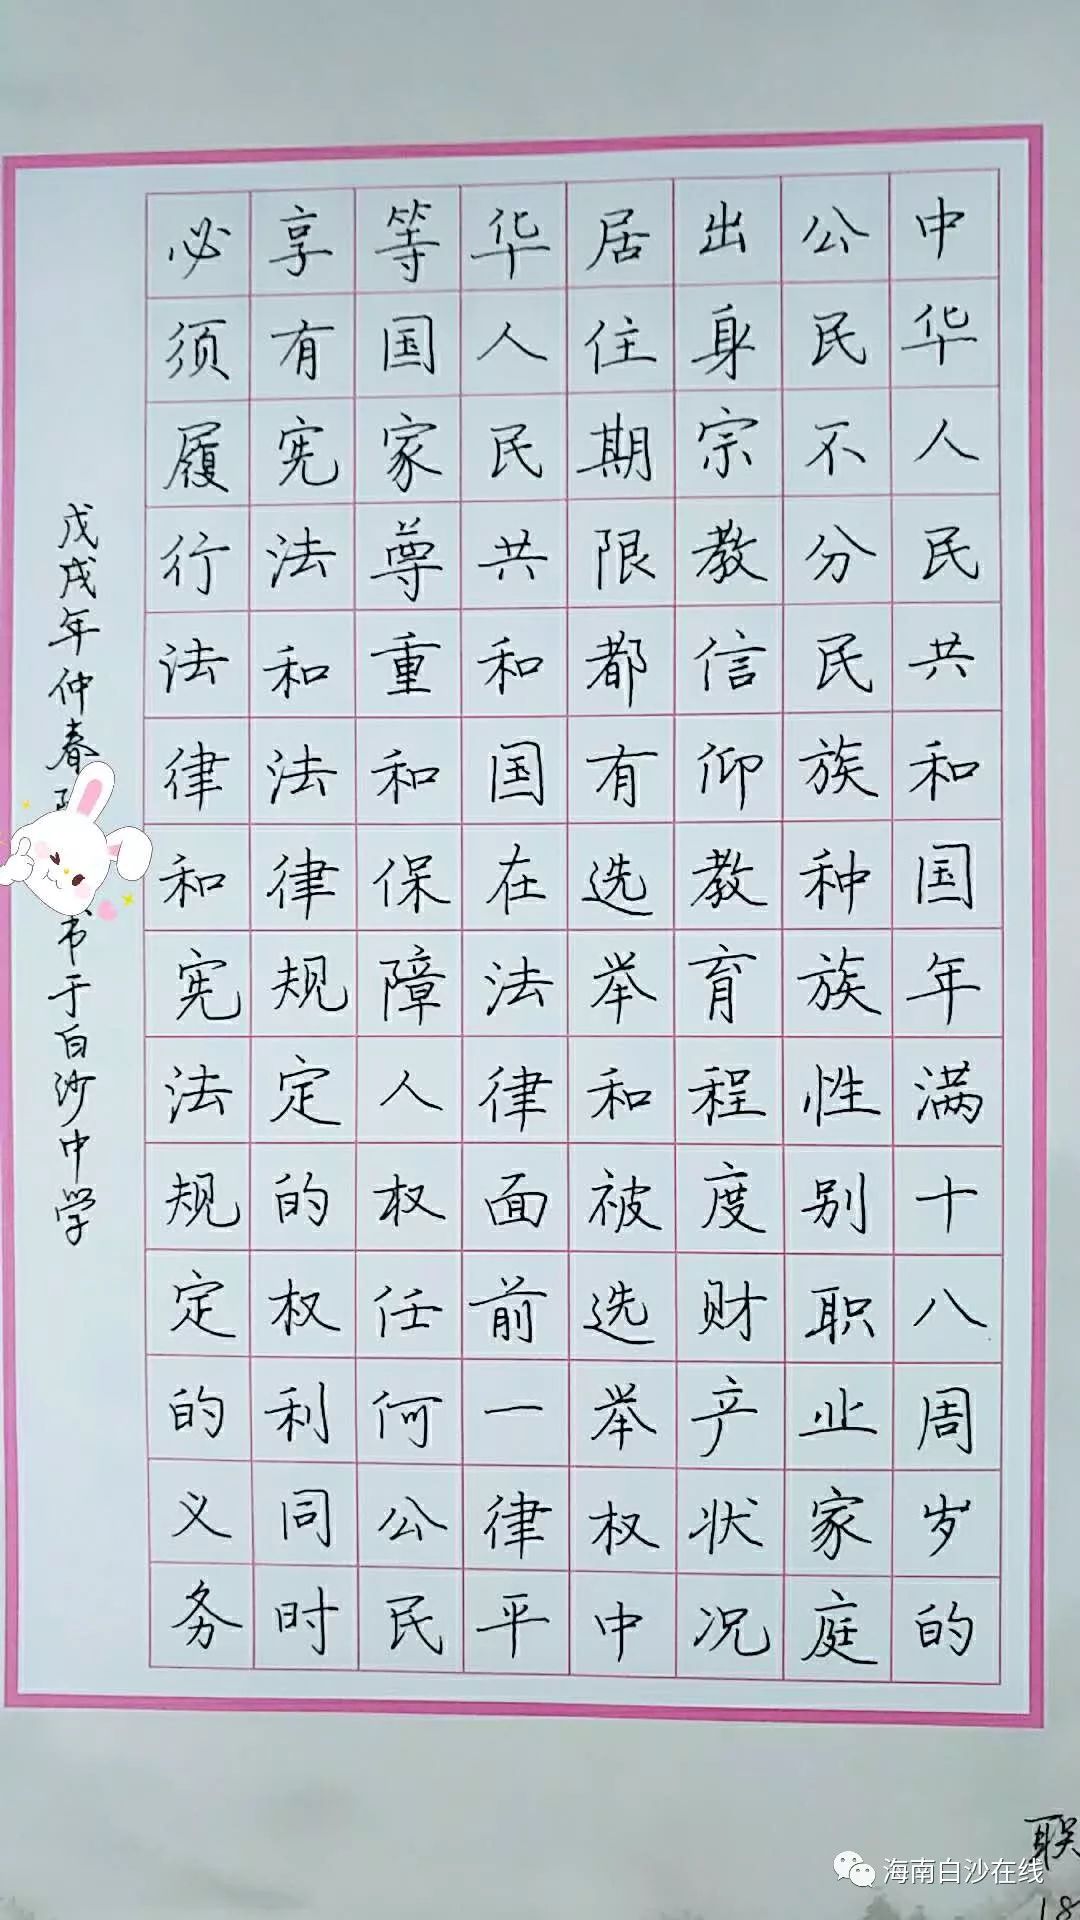 中华人民共和国年满十八周岁的
公民不分民族种族性别职业家庭
出身宗教信仰教育程度财产状况
居住期限都有选举和被选举权中
华人民共和国在法律面前一律平
等国家尊重和保障人权任何公民
享有宪法和法律规定的权利同时
必须履行法律和宪法规定的义务
戊戌年仲春
书于白沙中学
联
18
海南白沙在线